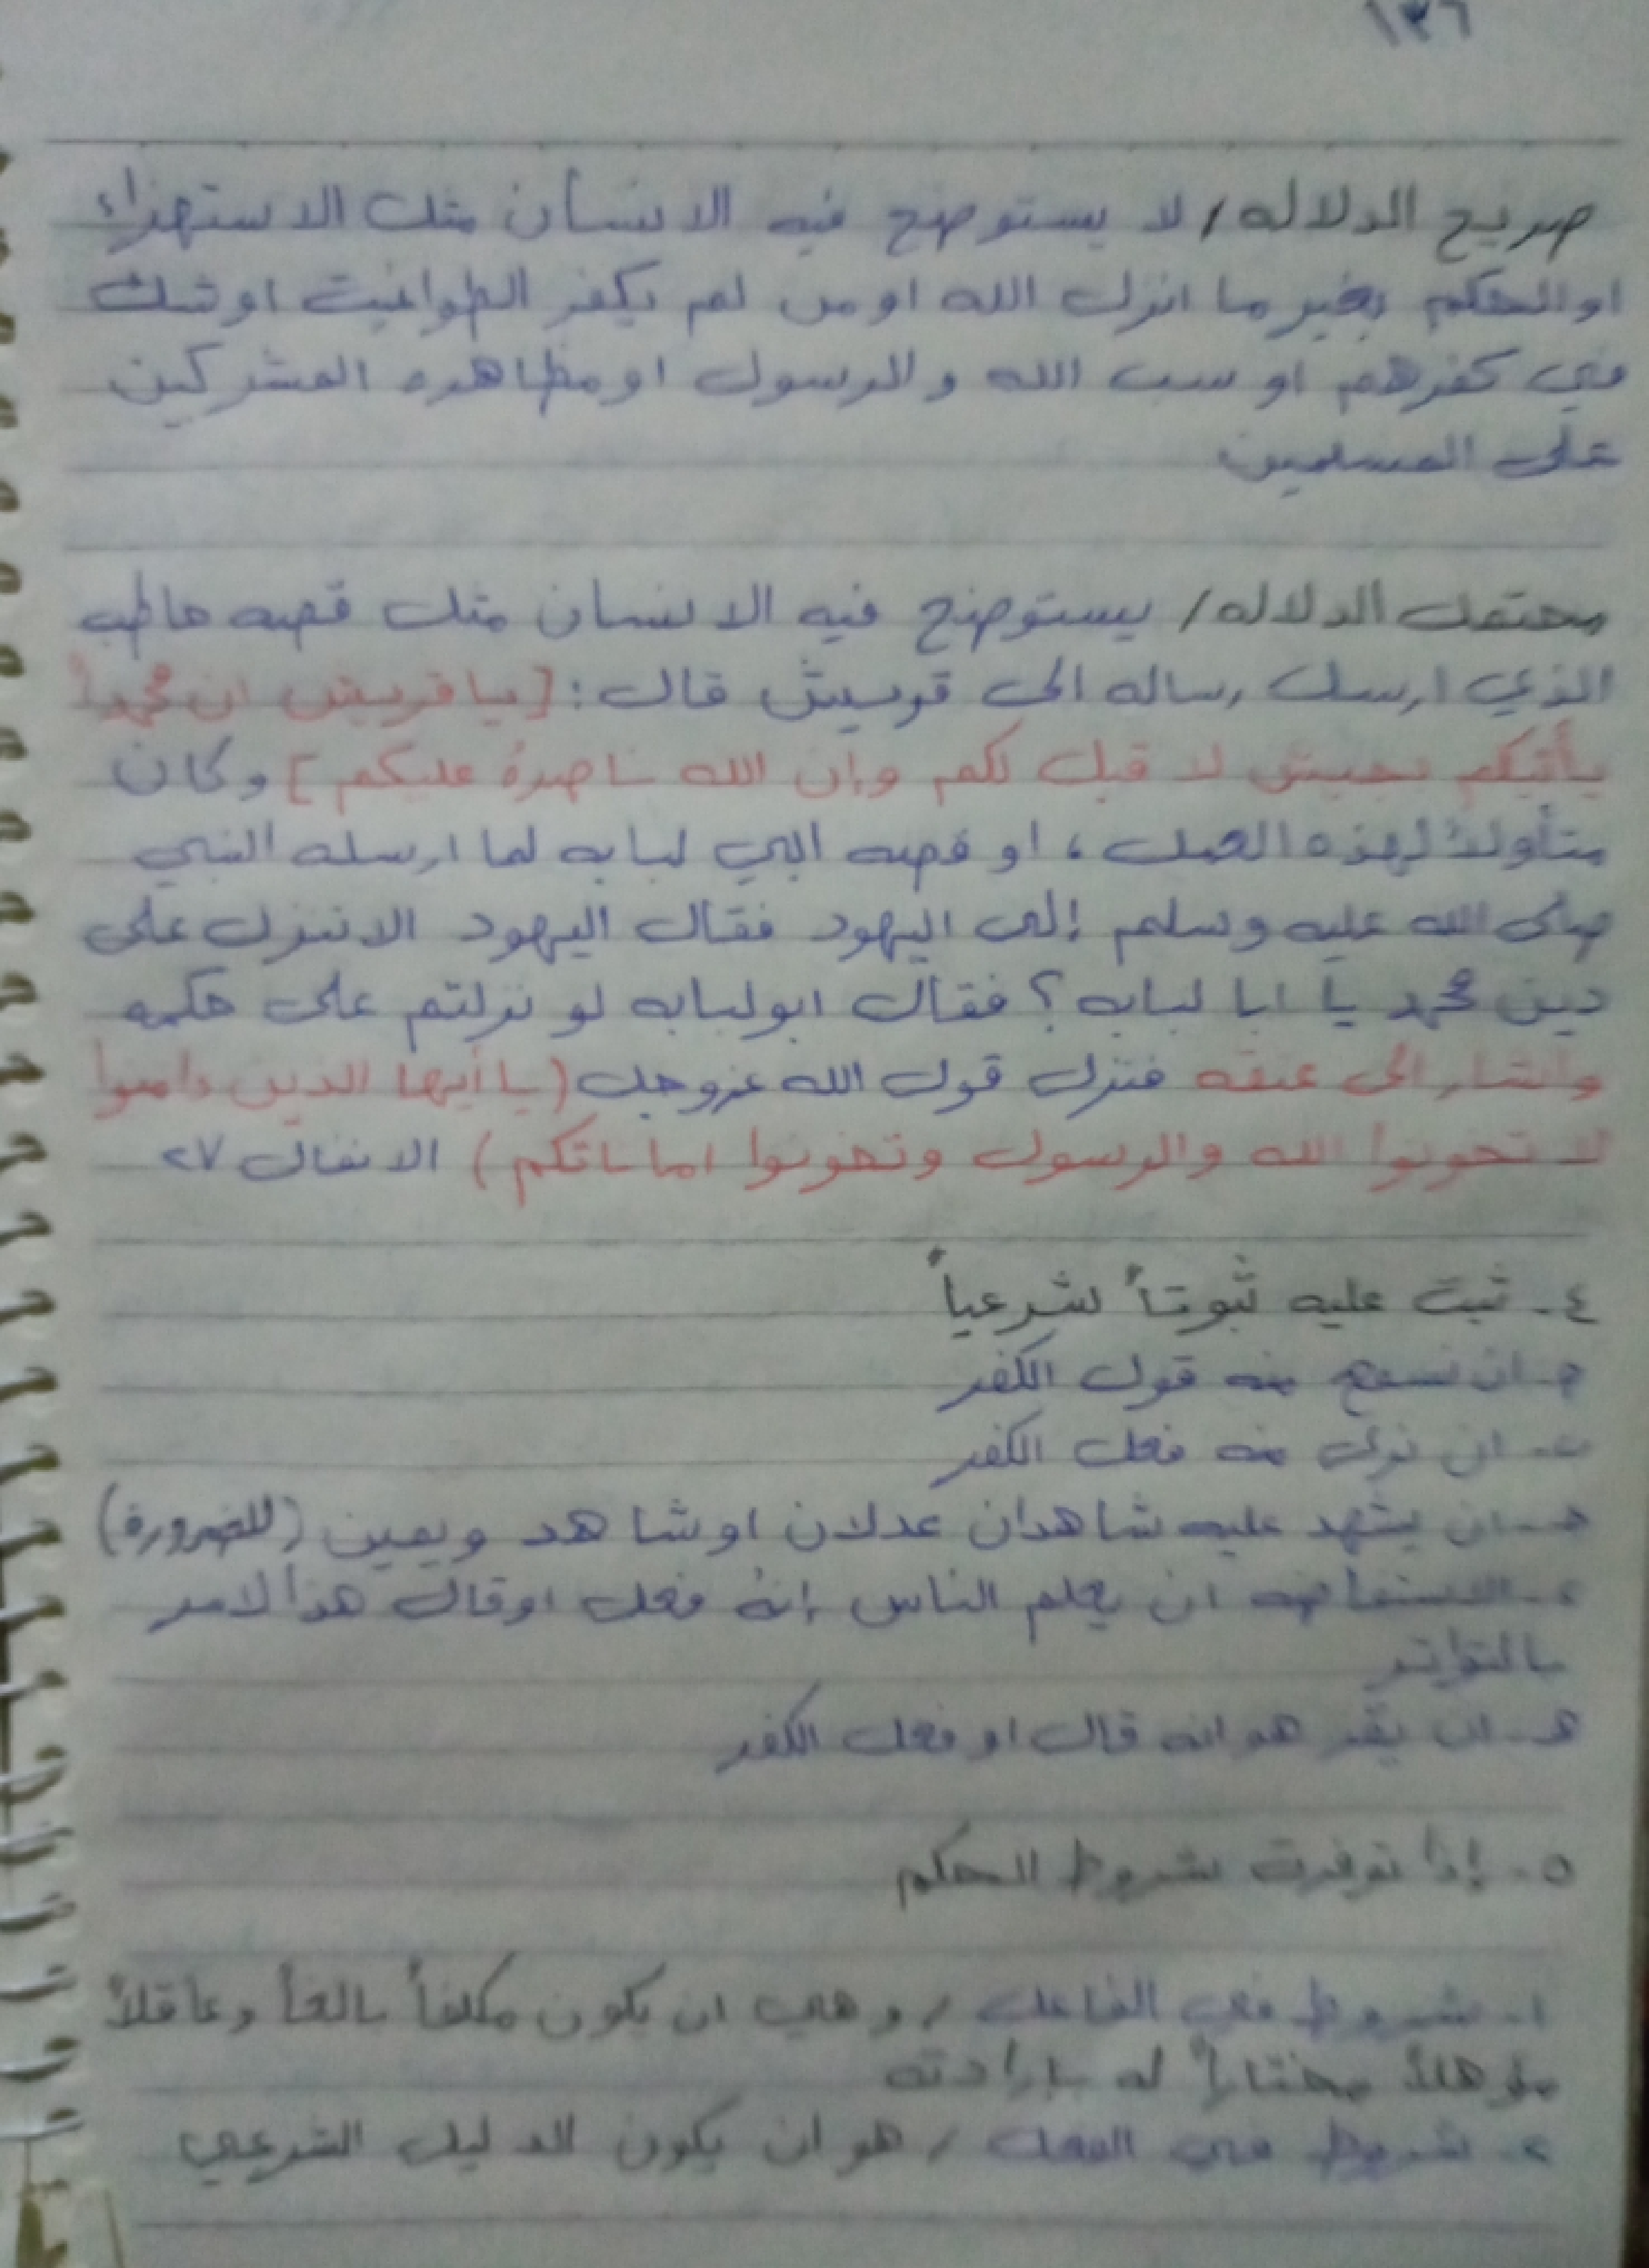 ١٣٦
صريح الدلاله / لا يستوضح فيه الانسان مثل الاستهزاء
او الحكم بغير ما انزل الله او من لم يكفر الطواغيت او شك
في كفرهم او سب الله والرسول او مظاهره المشركين
على المسلمين
محتمل الدلاله / يستوضح فيه الانسان مثل قصه حاطب
الذي ارسل رساله الى قريش قال : [ يا قريش ان محمداً
يأتيكم بجيش لا قبل لكم وإن الله ناصرهُ عليكم ] وكان
متأولاً لهذه العمل ، او قصه ابي لبابه لما ارسله النبي
صلى الله عليه وسلم إلى اليهود فقال اليهود الا ننزل على
دين محمد يا ابا لبابه ؟ فقال ابو لبابه لو نزلتم على حكمه
واشار الى عنقه فنزل قول الله عزوجل ( يا أيها الذين ءامنوا
لا تخونوا الله والرسول وتخونوا اماناتكم ) الانفال ٢٧
٤- ثبت عليه ثبوتاً شرعياً
ان نسمع منه قول الكفر
ان نرى منه فعل الكفر
ان يشهد عليه شاهدان عدلان او شاهد ويمين (للضرورة)
الاستفاضه ان يعلم الناس إنهُ فعل او قال هذا الامر
بالتواتر
هـ- ان يقر هو انه قال او فعل الكفر
٥- إذا توفرت شروط الحكم
١- شروط في الفاعل / وهي ان يكون مكلفاً بالغاً وعاقلاً
مؤهلاً مختاراً له بإرادته
٢- شروط في الفعل / هو ان يكون الدليل الشرعي